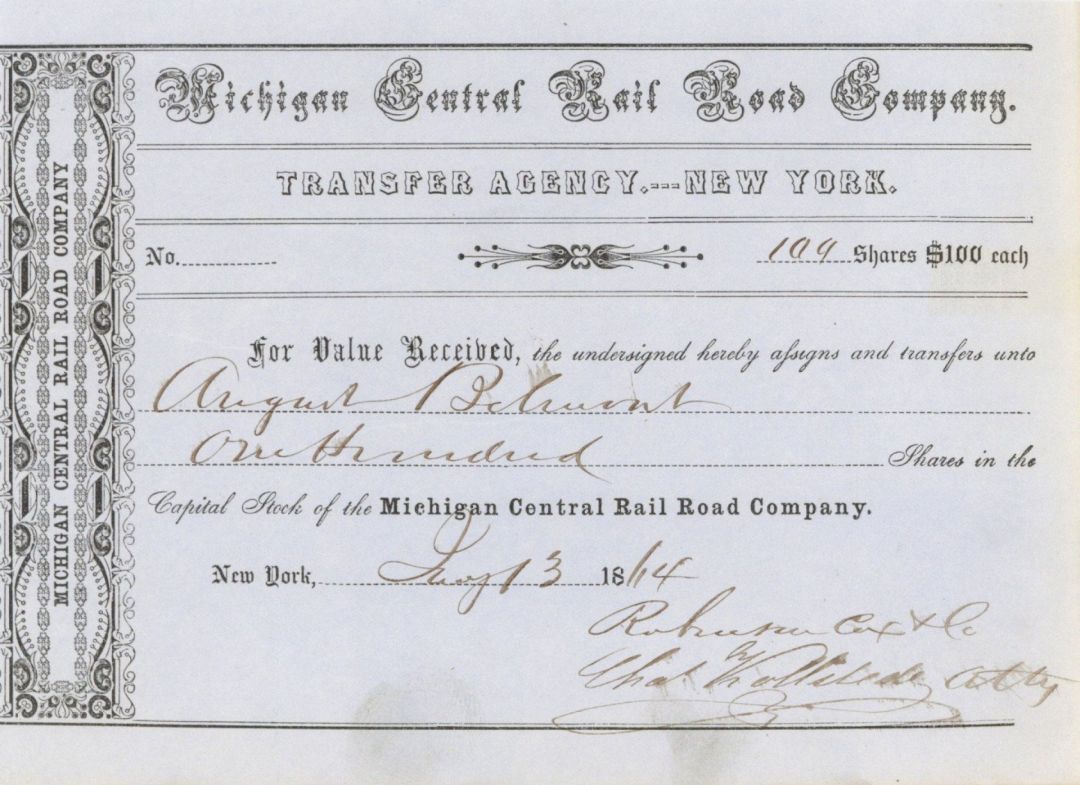 Michigan Central Rail Road Company.
TRANSFER AGENCY.---NEW YORK.
No. 100 Shares $100 each
For Value Received, the undersigned hereby aſsigns and transfers unto
August Belmont
One Hundred Shares in the
Capital Stock of the Michigan Central Rail Road Company.
New York, 13 1864
Robinson Cox & Co
Chas Atty
MICHIGAN CENTRAL RAIL ROAD COMPANY